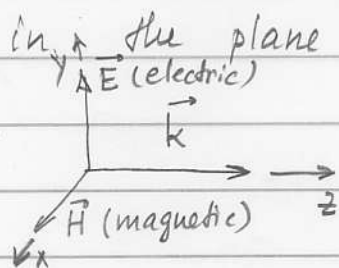 in the plane
y E (electric)
k
z
H (magnetic)
x